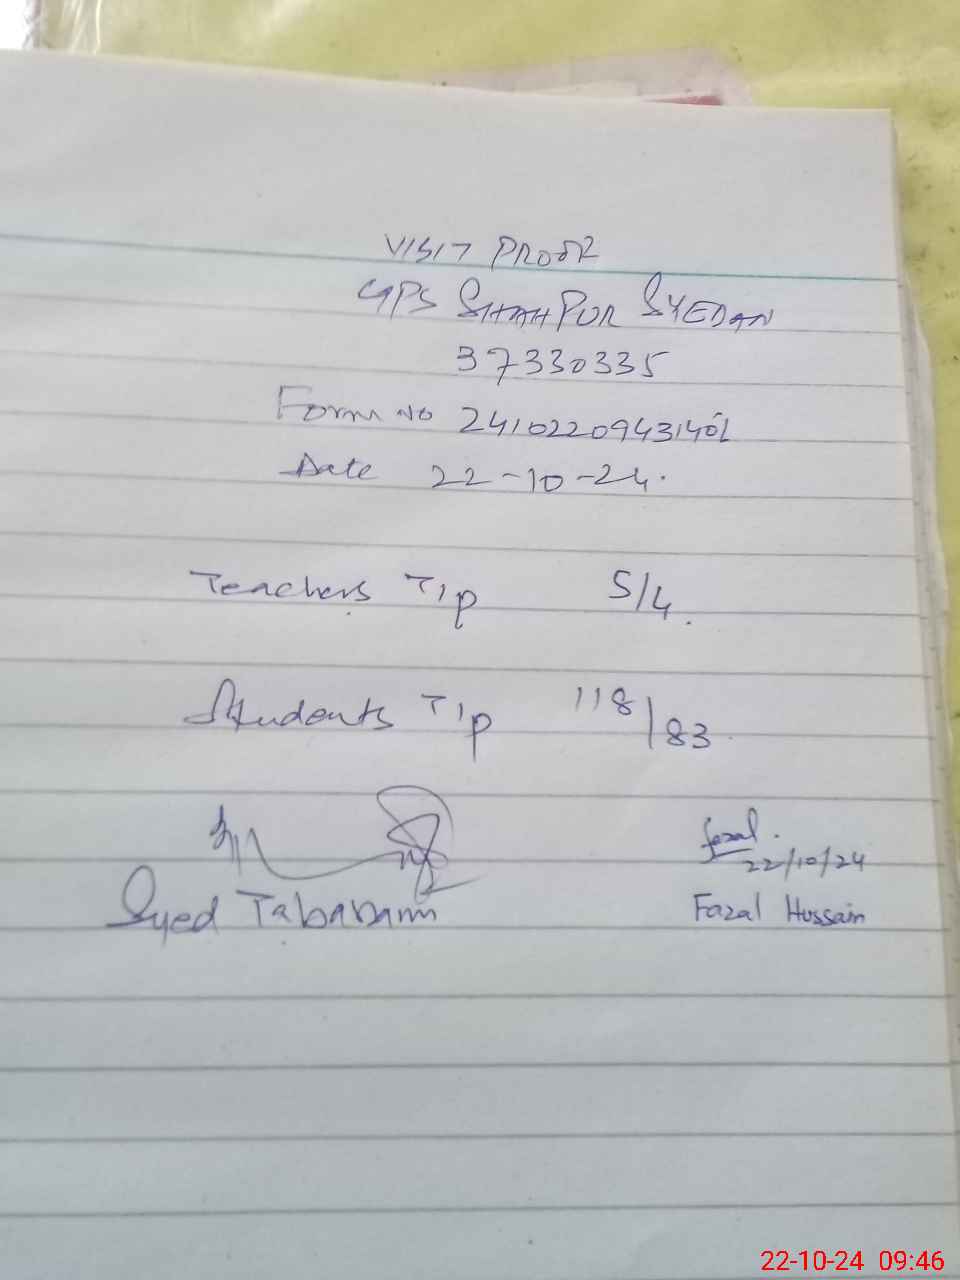 VISIT PROOF
GPS SHAH PUR SYEDAN
37330335
Form No 24102209431401
Date 22-10-24.
Teachers T/P 5/4.
Students T/P 118/83
fazal.
22/10/24
Syed
Fazal Hussain
22-10-24 09:46